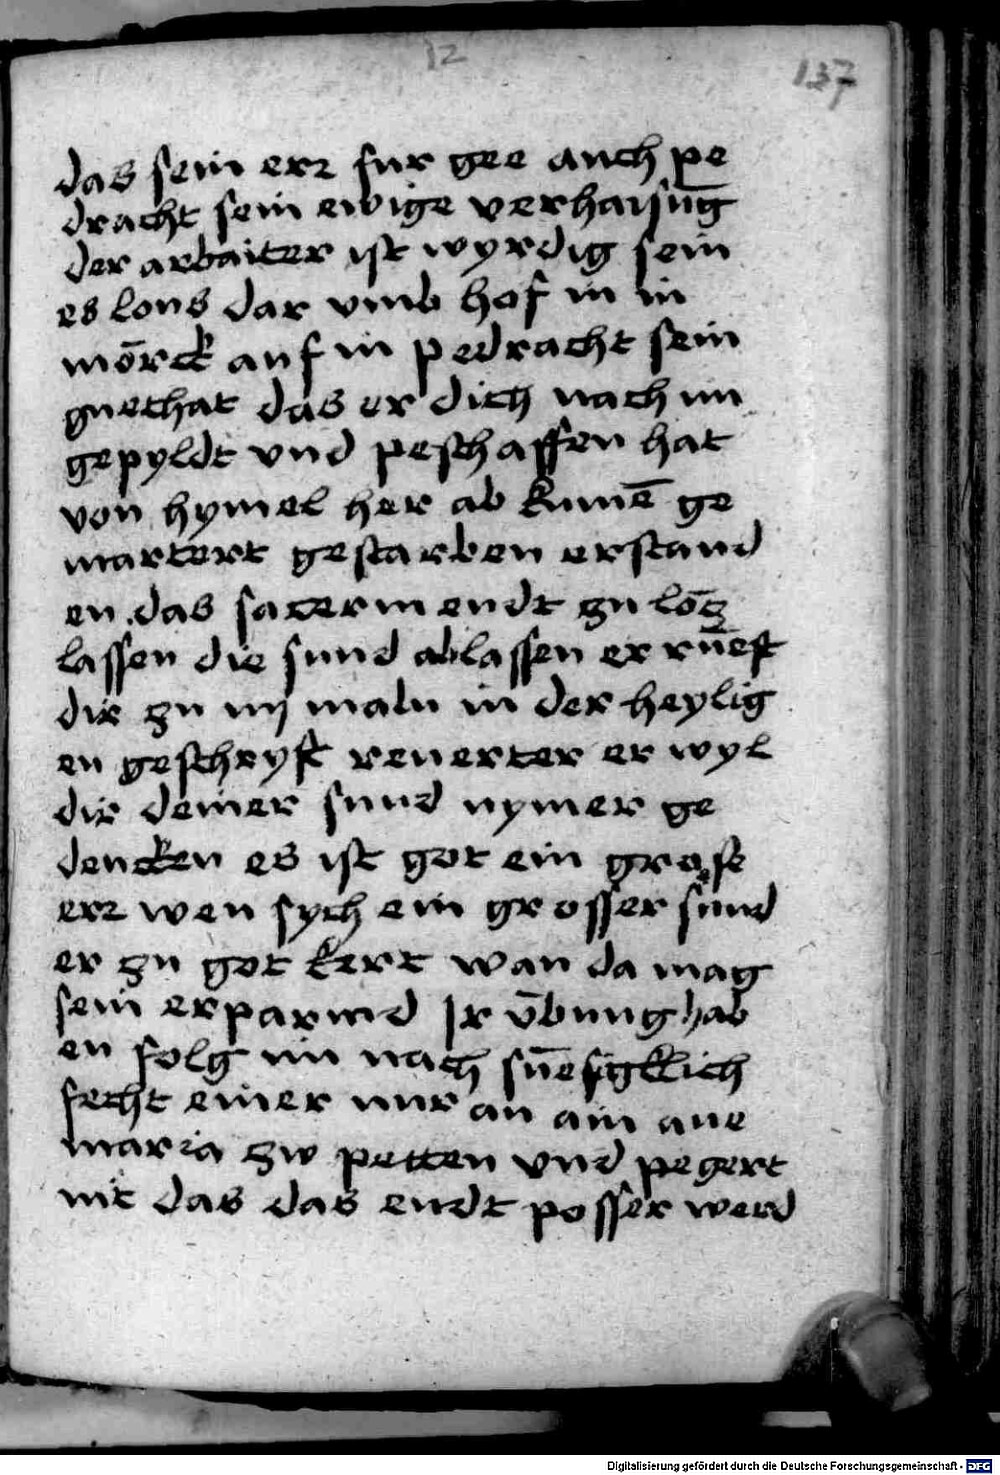 12
137
das sein erz fur gee auch pe
dracht sein ewige verhaisung
der arbaiter ist wyrdig sein
es lons dar vmb hof in in
mörck auf in pedracht sein
guethat das er dich nach im
gepyldt vnd peschaffen hat
von hymel her ab kumē ge
martert gestarben erstand
en das sacermendt zu
lassen die sund ablassen er rüeft
dir zu iij maln in der heylig
en geschryft reuerter er wyl
dir deiner sund nymer ge
dencken es ist got ein grose
erz wen sych ein grosser sünd
er zu got kert wan da mag
sein erparmd Ir übung hab
en folg im nach
fecht einer nur an ain aue
maria zw petten vnd pegert
nit das das endt posser werd
Digitalisierung gefördert durch die Deutsche Forschungsgemeinschaft - DFG